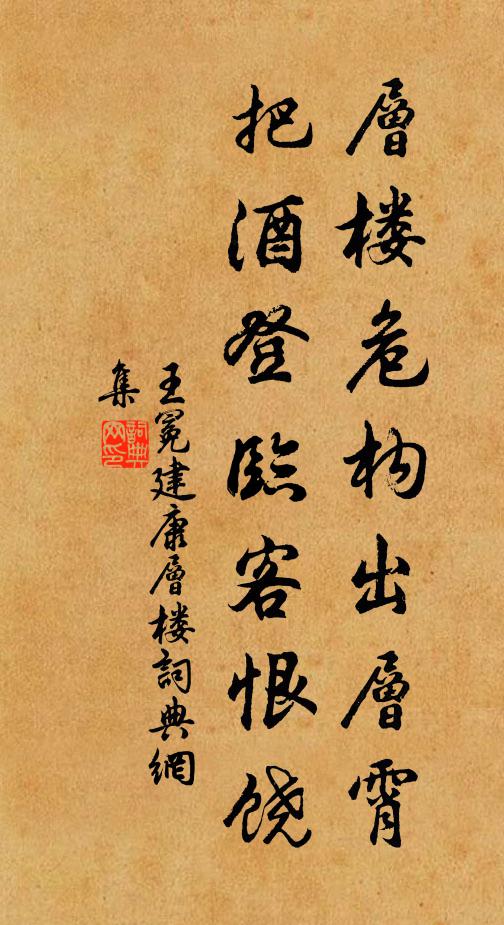 層楼危构出層霄
把酒登臨客恨饶
王冕建康層楼詞典網
集
詞典网印